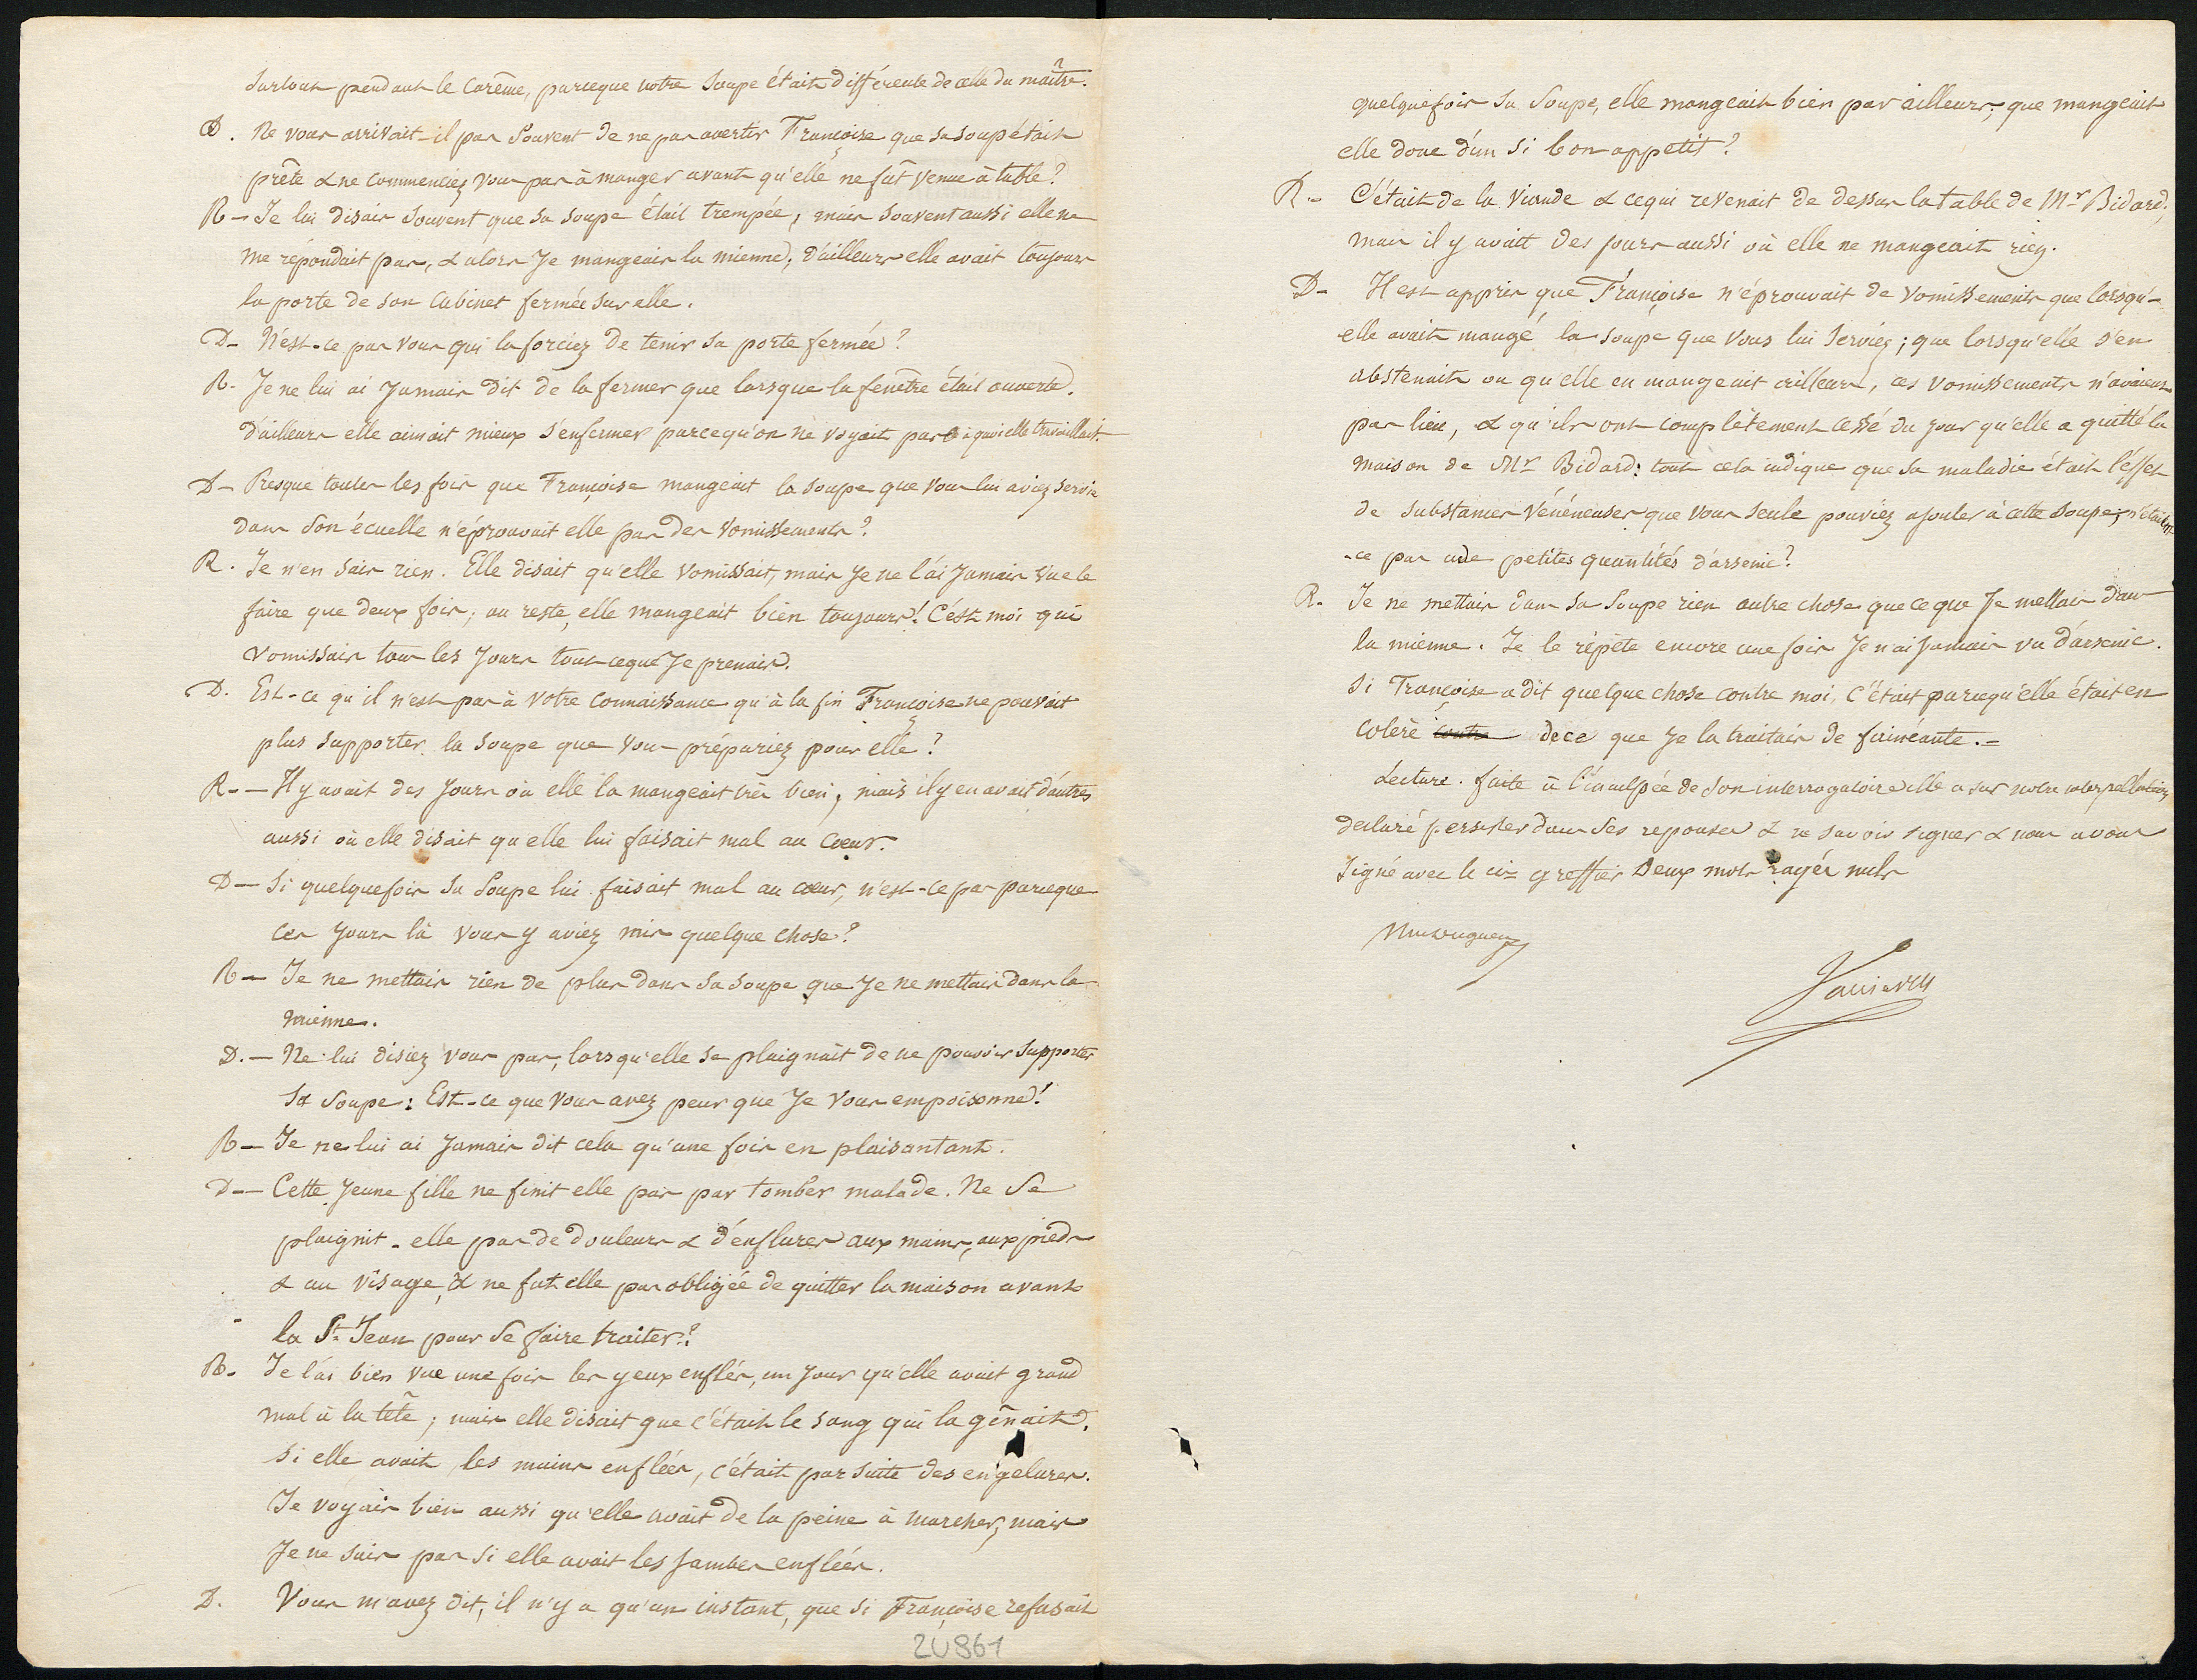 surtout pendant le Carême, parceque notre soupe était différente de celle du maître.
D. Ne vous arrivait-il pas souvent de ne pas avertir Françoise que sa soup était
prête & ne commenciez vous pas à manger avant qu'elle ne fût venue à table?
R - Je lui disais souvent que sa soupe était trempée, mais souvent aussi elle ne
me répondait pas, & alors je mangeais la mienne; d'ailleurs elle avait toujours
la porte de son cabinet fermée sur elle.
D - N'est-ce pas vous qui la forciez de tenir sa porte fermée?
R - Je ne lui ai jamais dit de la fermer que lorsque la fenêtre était ouverte.
d'ailleurs elle aimait mieux s'enfermer parcequ'on ne voyait pas à quoi elle travaillait.
D - Presque toutes les fois que Françoise mangeait la soupe que vous lui aviez servie
dans son écuelle n'éprouvait elle pas des vomissements?
R. Je n'en sais rien. Elle disait qu'elle vomissait, mais je ne l'ai jamais vue le
faire que deux fois; au reste, elle mangeait bien toujours! C'est moi qui
vomissais tous les jours tout ceque je prenais.
D. Est-ce qu'il n'est pas à votre connaissance qu'à la fin Françoise ne pouvait
plus supporter la soupe que vous prépariez pour elle?
R. - Il y avait des jours où elle la mangeait très bien, mais il y en avait d'autres
aussi où elle disait qu'elle lui faisait mal au cœur.
D - Si quelquefois sa soupe lui faisait mal au cœur, n'est-ce pas parceque
ces jours là vous y aviez mis quelque chose?
R - Je ne mettais rien de plus dans sa soupe que je ne mettais dans la
mienne.
D. - Ne lui disiez vous pas, lorsqu'elle se plaignait de ne pouvoir supporter
sa soupe: Est-ce que vous avez peur que je vous empoisonne!
R - Je ne lui ai jamais dit cela qu'une fois en plaisantant.
D - Cette jeune fille ne finit elle pas par tomber malade. Ne se
plaignit-elle pas de douleurs & d'enflures aux mains, aux pieds
& au visage, & ne fut elle pas obligée de quitter la maison avant
la St Jean pour se faire traiter?
R. Je l'ai bien vue une fois les yeux enflés, un jour qu'elle avait grand
mal à la tête; mais elle disait que c'était le sang qui la gênait.
Si elle avait les mains enflées, c'était par suite des engelures.
Je voyais bien aussi qu'elle avait de la peine à marcher, mais
je ne sais pas si elle avait les jambes enflées.
D. Vous m'avez dit, il n'y a qu'un instant, que si Françoise refusait
20861
quelquefois sa soupe, elle mangeait bien par ailleurs; que mangeait
elle donc d'un si bon appetit?
R - C'était de la viande & cequi revenait de dessus la table de Mr Bidard;
mais il y avait des jours aussi où elle ne mangeait rien.
D - Il est appris que Françoise n'éprouvait de vomissements que lorsqu'-
elle avait mangé la soupe que vous lui serviez; que lorsqu'elle s'en
abstenait ou qu'elle en mangeait ailleurs, ces vomissements n'avaient
pas lieu, & qu'ils ont complètement cessé du jour qu'elle a quitté la
maison de Mr Bidard: tout cela indique que sa maladie était l'effet
de substances vénéneuses que vous seule pouviez ajouter à cette soupe; n'était
-ce pas de petites quantités d'arsenic?
R. Je ne mettais dans sa soupe rien autre chose que ce que je mettais dans
la mienne. Je le répète encore une fois je n'ai jamais vu d'arsenic.
Si Françoise a dit quelque chose contre moi, c'était parcequ'elle était en
colère contre de ce que je la traitais de fainéante. =
Lecture faite à l'inculpée de son interrogatoire elle a sur notre interpellation
declaré persister dans ses reponses & ne savoir signer & nous avons
signé avec le cis greffier Deux mots rayés nuls